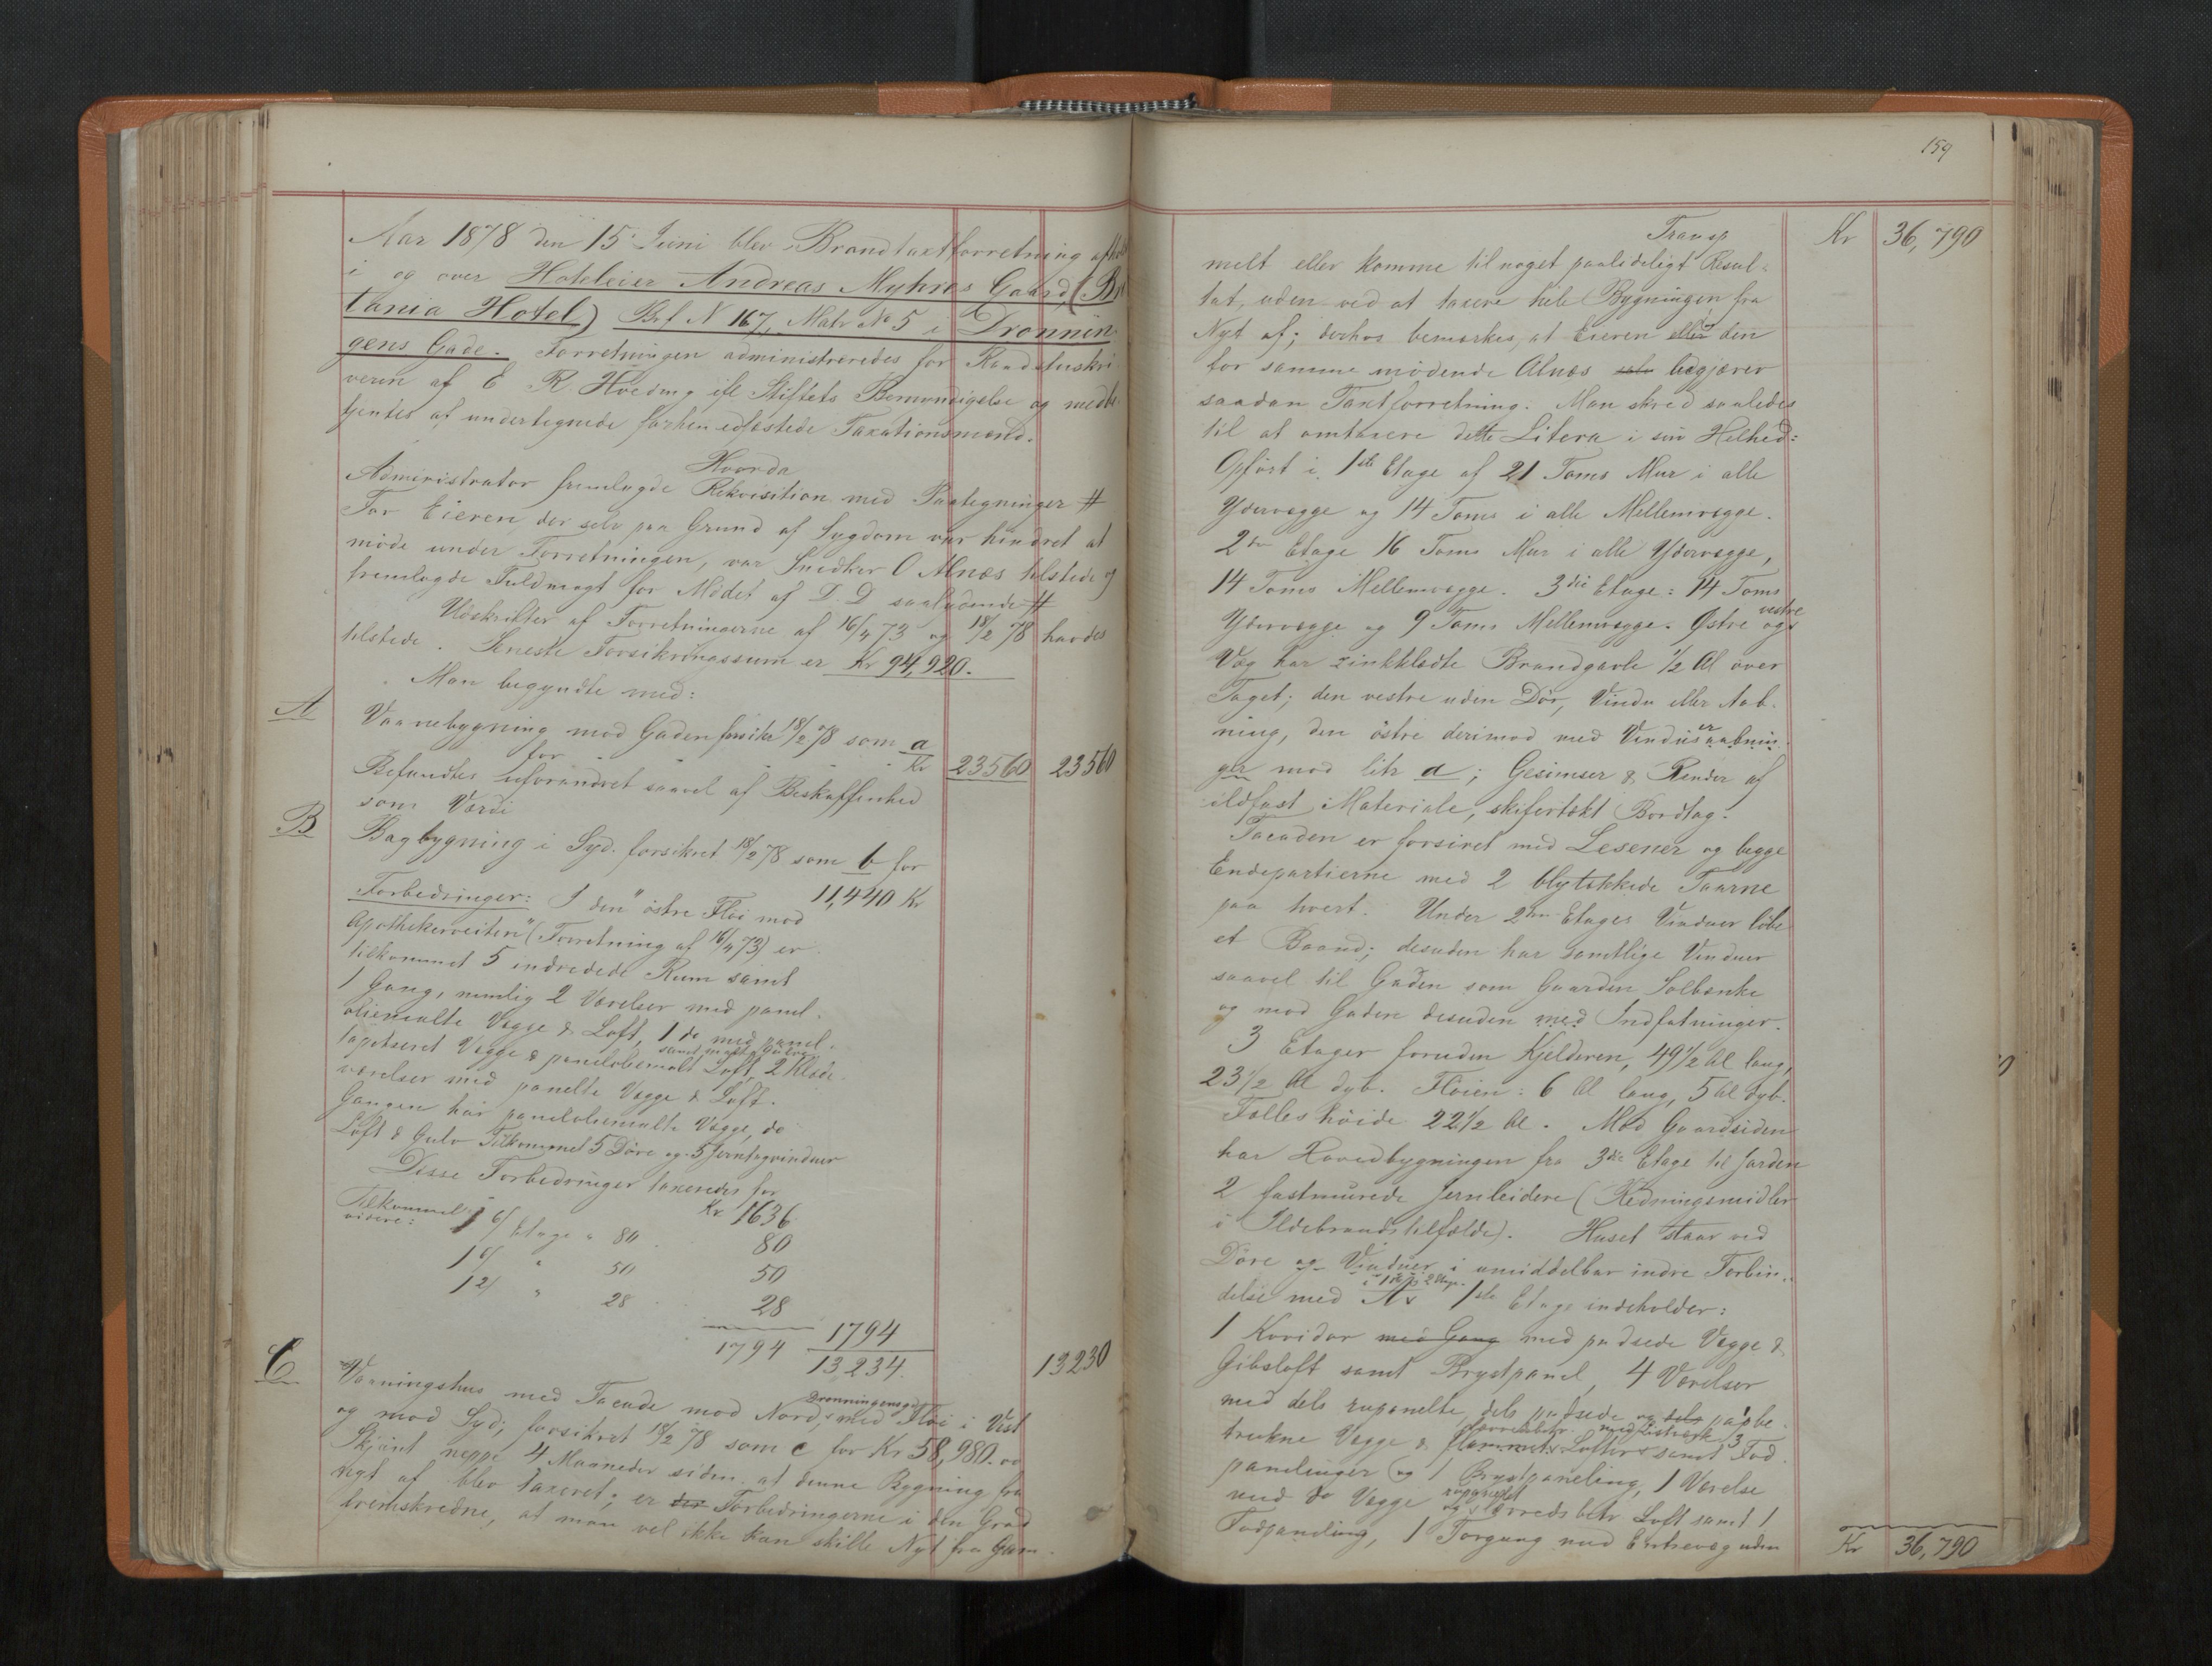 Aar 1878 den 15 Juni blev Brandtaxtforretning afholdt
i og over Hoteleier Andreas Myhres Gaard, (Bri
tania Hotel) Brf N 167, Matr No 5 i Dronnin
gens Gade. Forretningen administreredes for Raadstuskri
veren af E R. Hveding ifl Stiftets Bemyndigelse og medbe
tjentes af undertegnede forhen edfæstede Taxationsmænd.
Hvorda
Administrator fremlagde Rekvisition med Paategninger #
For Eieren, der selv paa Grund af Sygdom var hindret at
møde under Forretningen, var Snedker O Alnæs tilstede og
fremlagde Fuldmagt for Mødet af D. D saalydende #
Udskrifter af Forretningerne af 16/4 73 og 18/2 78 havdes
tilstede. Seneste Forsikringssum er Kr 94,920.
Man begyndte med:
A Vaanebygning mod Gaden forsikr 18/2 78 som a
for . . . . Kr 23560 23560
Befandtes uforandret saavel af Beskaffenhed
som Værdi
B Bagbygning i Syd. forsikret 18/2 78 som b for
11,440 Kr
Forbedringer: I den "østre Fløi mod
Apothekerveiten" (Forretning af 16/4 73) er
tilkommet 5 indredede Rum samt
1 Gang, nemlig 2 Værelser med panel.
oliemalte Vægge & Loft, 1 do med panel.
tapetseret Vægge & paneloliemalt Loft, 2 Klæde
samt malt Gulve
værelser med panelte Vægge & Loft.
Gangen har paneloliemalte Vægge, do
Loft & Gulv Tilkommet 5 Døre og 5 Jerntagvinduer
Disse Forbedringer taxeredes for
Kr 1636
Tilkommet
videre: 1 6/ Etage " 80 . . 80
1 6/ " 50 50
1 2/ " 28 . . 28
1794 1794
13,234. 13230
C Vaaningshus med Facade mod Nord, med Fløi i Vest
Dronningensgd
og mod Syd; forsikret 18/2 78 som c for Kr 58,980.00
Skjønt neppe 4 Maaneder siden at denne Bygning fra
nyt af blev taxeret, er der Forbedringerne i den Grad
fremskredne, at man vel ikke kan skille Nyt fra Gam
159
Transp Kr 36,790
melt eller komme til noget paalideligt Resul-
tat, uden ved at taxere hele Bygningen fra
Nyt af; derhos bemærkes, at Eieren eller den
for samme mødende Alnæs selv begjærer
saadan Taxtforretning. Man skred saaledes
til at omtaxere dette Litera i sin Helhed:
Opført i 1ste Etage af 21 Toms Mur i alle
Ydervægge og 14 Toms i alle Mellemvægge.
2den Etage 16 Toms Mur i alle Ydervægge,
14 Toms Mellemvægge. 3die Etage: 14 Toms
Ydervægge og 9 Toms Mellemvægge. Østre og
vestre
Væg har zinkklædte Brandgavle 1/2 Al over
Taget; den vestre uden Dør, Vindu eller Aab-
ning, den østre derimod med Vinduesaabnin
ger mod litr a; Gesimser & Render af
ildfast Materiale, skifertækt Bordtag.
Facaden er forsiret med Lesener og begge
Endepartierne med 2 blytækkede Taarne
paa hvert. Under 2den Etages Vinduer løbe
et Baand; desuden har samtlige Vinduer
saavel til Gaden som Gaarden Solbænke
og mod Gaden desuden med Indfatninger.
3 Etager foruden Kjelderen, 49 1/2 Al lang,
23 1/2 Al dyb. Fløien: 6 Al lang, 5 Al dyb.
Fælles høide 22 1/2 Al. Mod Gaardsiden
har Hovedbygningen fra 3die Etage til Jorden
2 fastmurede Jernleidere (Redningsmidler
i Ildebrandstilfælde). Huset staar ved
Døre og Vinduer i umiddelbar indre Forbin-
i 1ste og 2 Etage.
delse med A. 1ste Etage indeholder:
1 Koridor med Gang med pudsede Vægge &
Gibsloft samt Brystpanel, 4 Værelser
med dels rupanelte, dels pudsede og dels papbe
trukne Vægge & Lofter samt 3 Fod
med Listværk
panelinger og 1 Brystpaneling, 1 Værelse
med do Vægge og lærredsbetr Loft samt 1
rupanelt
Fodpaneling, 1 Forgang med Entrevæg uden
Kr 36,790